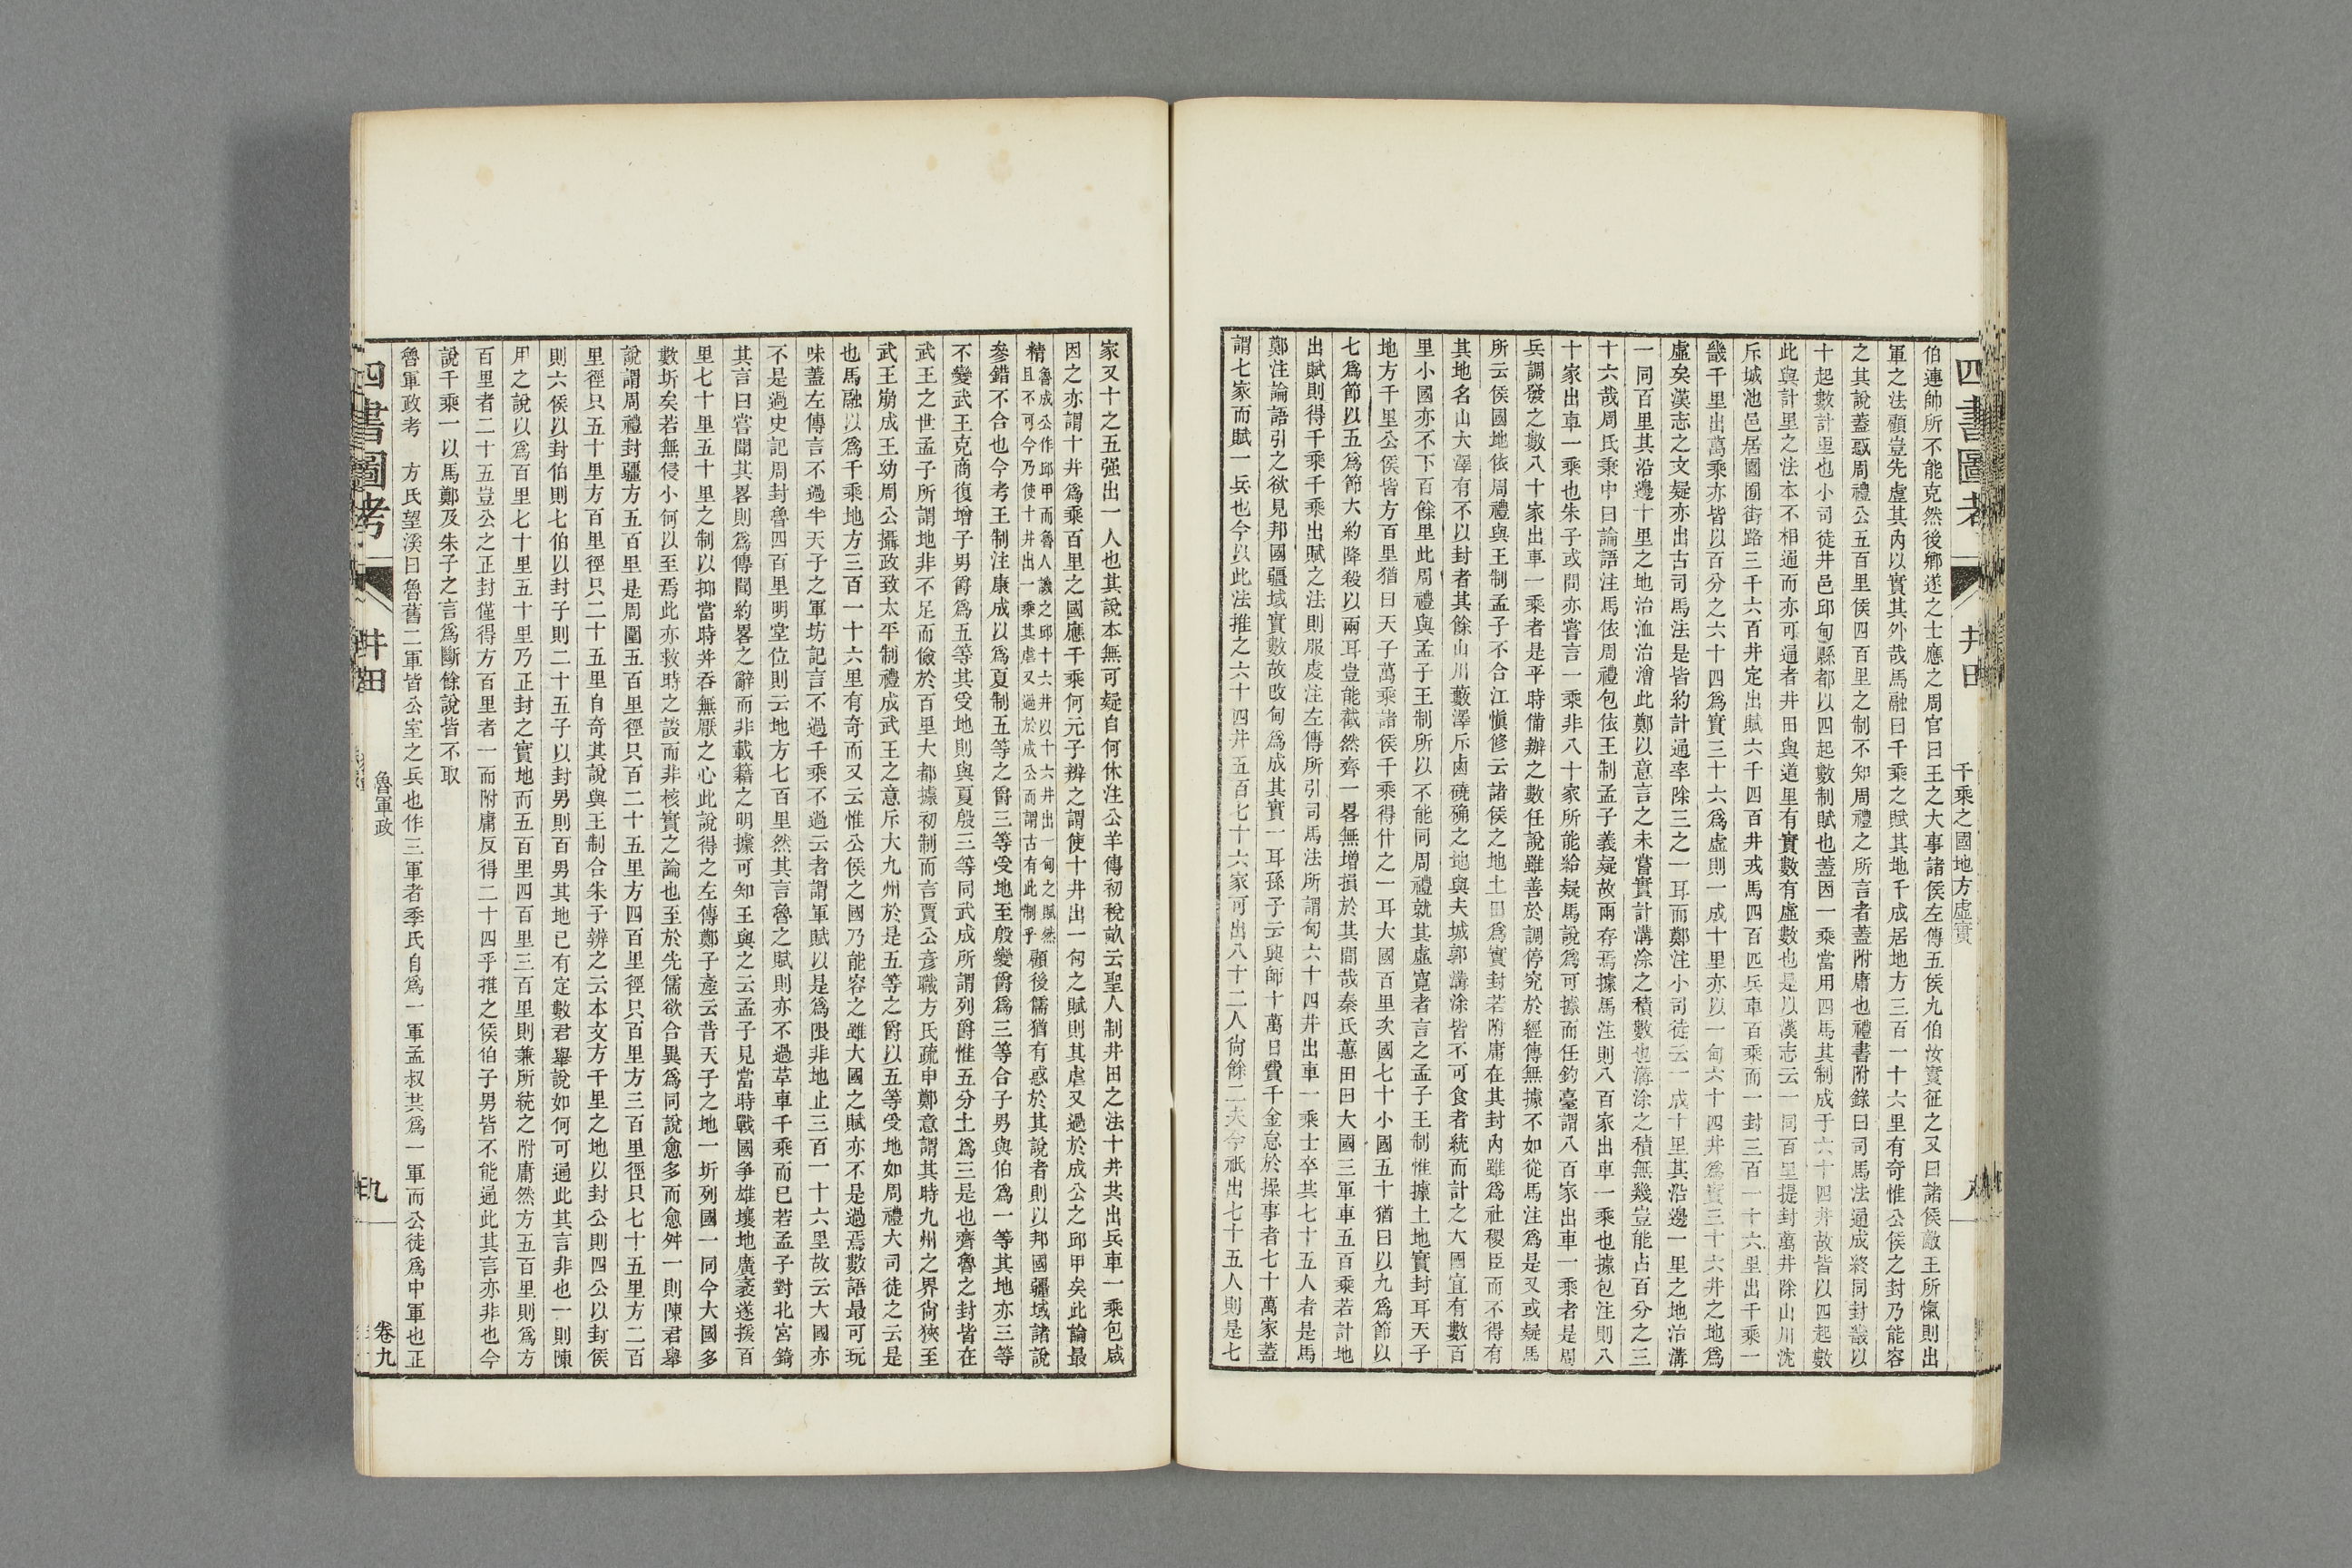 四書圖考
井田
千乘之國地方虛實
伯連帥所不能克然後鄉遂之士應之周官曰王之大事諸侯左傳五侯九伯汝實征之又曰諸侯敵王所愾則出
軍之法顧豈先虛其內以實其外哉馬融曰千乘之賦其地千成居地方三百一十六里有奇惟公侯之封乃能容
之其說蓋惑周禮公五百里侯四百里之制不知周禮之所言者蓋附庸也禮書附錄曰司馬法通成終同封畿以
十起數計里也小司徒井邑邱甸縣都以四起數制賦也蓋因一乘當用四馬其制成于六十四井故皆以四起數
此與計里之法本不相通而亦可通者井田與道里有實數有虛數也是以漢志云一同百里提封萬井除山川沈
斥城池邑居園囿街路三千六百井定出賦六千四百井戎馬四百匹兵車百乘而一封三百一十六里出千乘一
畿千里出萬乘亦皆以百分之六十四為實三十六為虛則一成十里亦以一甸六十四井為實三十六井之地為
虛矣漢志之文疑亦出古司馬法是皆約計通率除三之一耳而鄭注小司徒云一成十里其沿邊一里之地治溝
一同百里其沿邊十里之地治洫治澮此鄭以意言之未嘗實計溝涂之積數也溝涂之積無幾豈能占百分之三
十六哉周氏秉中曰論語注馬依周禮包依王制孟子義疑故兩存焉據馬注則八百家出車一乘也據包注則八
十家出車一乘也朱子或問亦嘗言一乘非八十家所能給疑馬說為可據而任鈞臺謂八百家出車一乘者是周
兵調發之數八十家出車一乘者是平時備辦之數任說雖善於調停究於經傳無據不如從馬注為是又或疑馬
所云侯國地依周禮與王制孟子不合江愼修云諸侯之地土田為實封若附庸在其封內雖為社稷臣而不得有
其地名山大澤有不以封者其餘山川藪澤斥鹵磽确之地與夫城郭溝涂皆不可食者統而計之大國宜有數百
里小國亦不下百餘里此周禮與孟子王制所以不能同周禮就其虛寬者言之孟子王制惟據土地實封耳天子
地方千里公侯皆方百里猶曰天子萬乘諸侯千乘得什之一耳大國百里次國七十小國五十猶曰以九為節以
七為節以五為節大約降殺以兩耳豈能截然齊一畧無增損於其間哉秦氏蕙田曰大國三軍車五百乘若計地
出賦則得千乘千乘出賦之法則服虔注左傳所引司馬法所謂甸六十四井出車一乘士卒共七十五人者是馬
鄭注論語引之欲見邦國疆域實數故改甸為成其實一耳孫子云興師十萬日費千金怠於操事者七十萬家蓋
謂七家而賦一兵也今以此法推之六十四井五百七十六家可出八十二人尚餘二夫今祇出七十五人則是七
家又十之五強出一人也其說本無可疑自何休注公羊傳初稅畝云聖人制井田之法十井共出兵車一乘包咸
因之亦謂十井為乘百里之國應千乘何元子辨之謂使十井出一甸之賦則其虐又過於成公之邱甲矣此論最
精魯成公作邱甲而魯人譏之邱十六井以十六井出一甸之賦然且不可今乃使十井出一乘其虐又過於成公而謂古有此制乎顧後儒猶有惑於其說者則以邦國疆域諸說
參錯不合也今考王制注康成以為夏制五等之爵三等受地至殷變爵為三等合子男與伯為一等其地亦三等
不變武王克商復增子男爵為五等其受地則與夏殷三等同武成所謂列爵惟五分土為三是也齊魯之封皆在
武王之世孟子所謂地非不足而儉於百里大都據初制而言賈公彥職方氏疏申鄭意謂其時九州之界尚狹至
武王崩成王幼周公攝政致太平制禮成武王之意斥大九州於是五等之爵以五等受地如周禮大司徒之云是
也馬融以為千乘地方三百一十六里有奇而又云惟公侯之國乃能容之雖大國之賦亦不是過焉數語最可玩
味蓋左傳言不過半天子之軍坊記言不過千乘不過云者謂軍賦以是為限非地止三百一十六里故云大國亦
不是過史記周封魯四百里明堂位則云地方七百里然其言魯之賦則亦不過革車千乘而已若孟子對北宮錡
其言曰嘗聞其畧則為傳聞約畧之辭而非載籍之明據可知王與之云孟子見當時戰國爭雄壤地廣袤遂援百
里七十里五十里之制以抑當時并吞無厭之心此說得之左傳鄭子產云昔天子之地一圻列國一同今大國多
數圻矣若無侵小何以至焉此亦救時之談而非核實之論也至於先儒欲合異為同說愈多而愈舛一則陳君舉
說謂周禮封疆方五百里是周圍五百里徑只百二十五里方四百里徑只百里方三百里徑只七十五里方二百
里徑只五十里方百里徑只二十五里自奇其說與王制合朱子辨之云本文方千里之地以封公則四公以封侯
則六侯以封伯則七伯以封子則二十五子以封男則百男其地已有定數君舉說如何可通此其言非也一則陳
用之說以為百里七十里五十里乃正封之實地而五百里四百里三百里則兼所統之附庸然方五百里則為方
百里者二十五豈公之正封僅得方百里者一而附庸反得二十四乎推之侯伯子男皆不能通此其言亦非也今
說千乘一以馬鄭及朱子之言為斷餘說皆不取
魯軍政考　方氏望溪曰魯舊二軍皆公室之兵也作三軍者季氏自為一軍孟叔共為一軍而公徒為中軍也正
四書圖考
井田
魯軍政
九
卷九